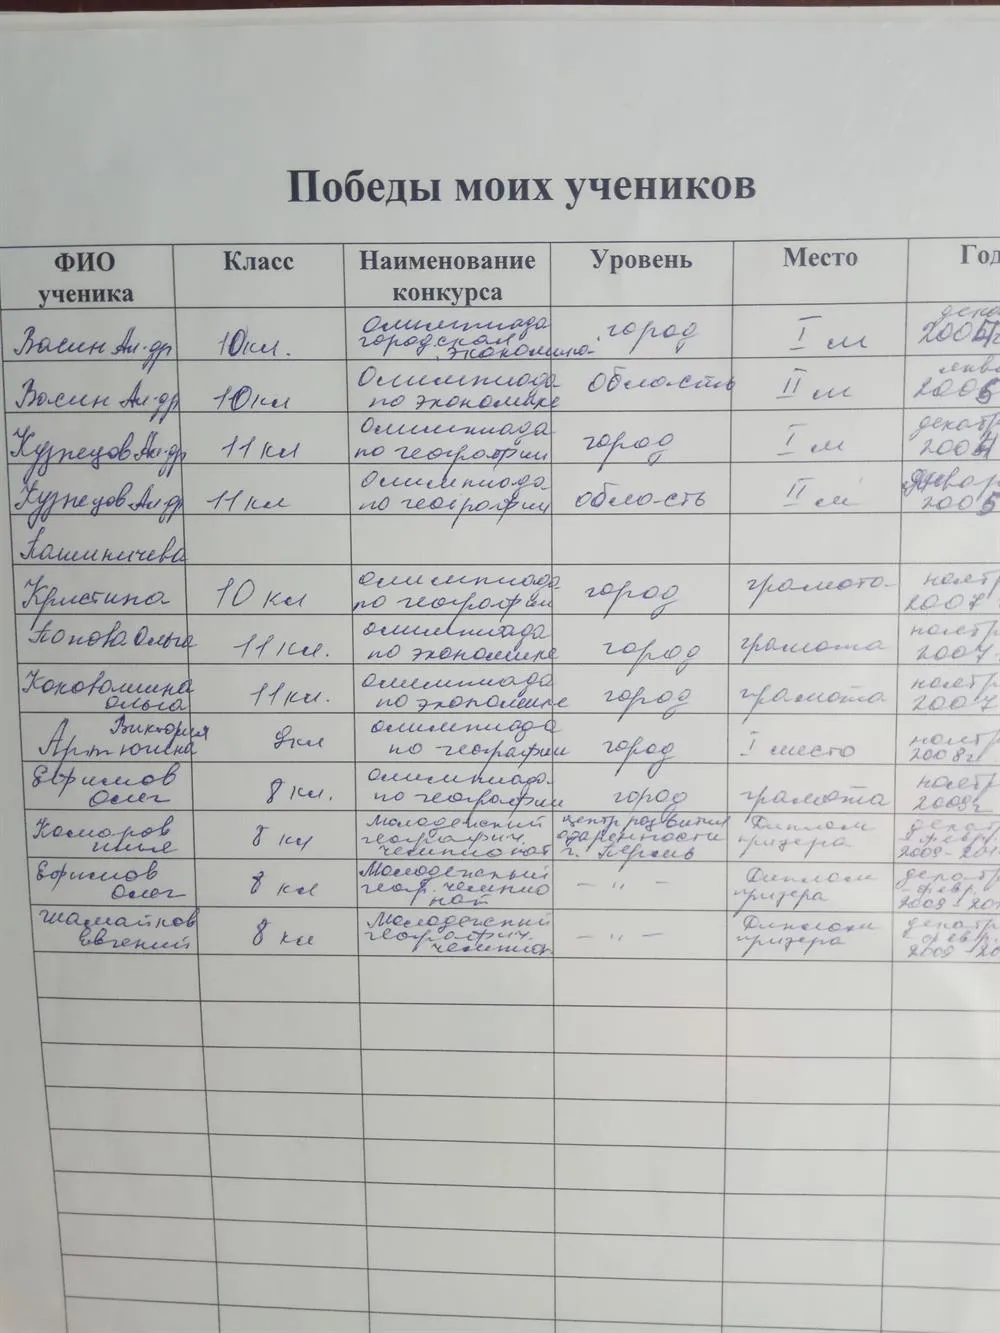 Победы моих учеников
ФИО ученика Класс Наименование конкурса Уровень Место Год
Васин Ал-др 10кл. олимпиада городская экономика город I м 2005
Васин Ал-др 10кл Олимпиада по экономике область II м 2005
Кузнецов Ал-др 11 кл Олимпиада по географии город I м 2004
Кузнецов Ал-др 11кл Олимпиада по географии область II м январ 2005
Кристина 10 кл олимпиада по географии город грамота 2007
Попова Ольга 11 кл. олимпиада по экономике город грамота 2007
Коновалшина Ольга 11 кл. олимпиада по экономике город грамота 2007
Виктория Артюшена 9кл олимпиада по географии город I место 2008г
Ефимов Олег 8 кл. олимпиада по географии город грамота
Комаров Илья 8 кл Молодежский географич. чемпионат центр развития одаренности г. Пермь Диплом призера 2009-20
Ефимов Олег 8 кл Молодежский геогр. чемпионат — " — Диплом призера 2009-20
Шамайков Евгений 8 кл Молодежский географич. чемпион — " — Диплом призера 2009-20